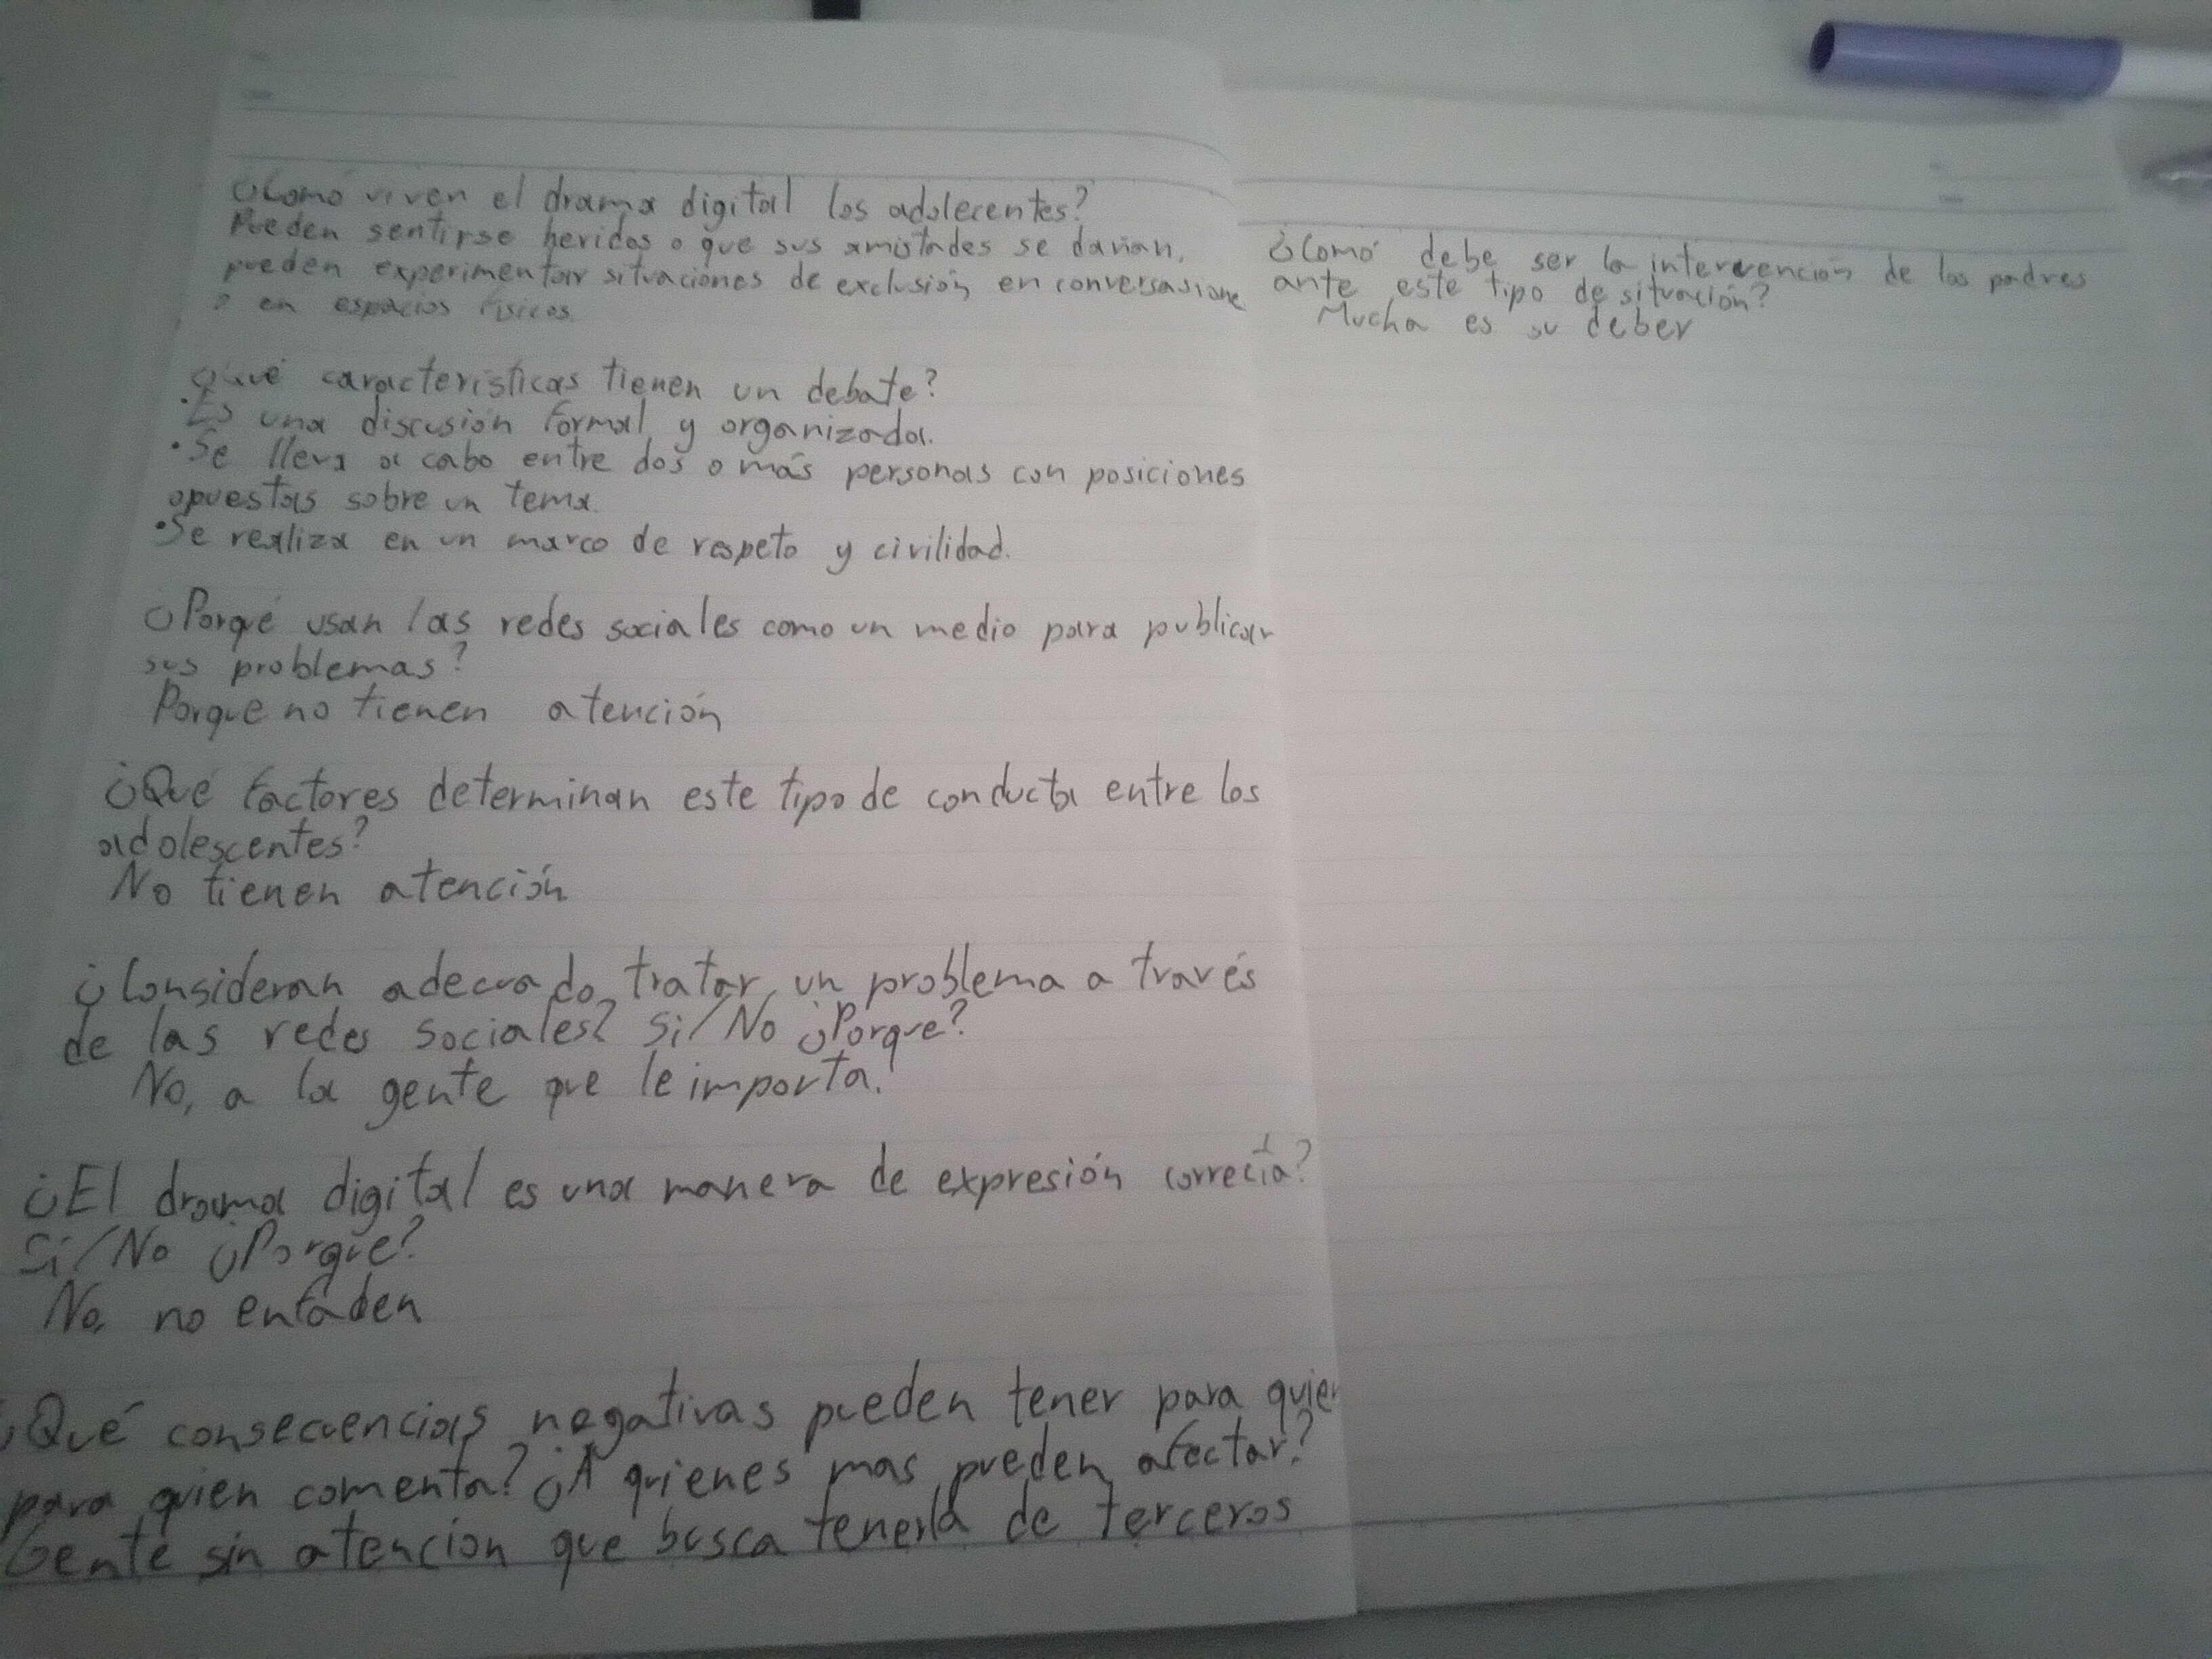 ¿Como viven el drama digital los adolecentes?
Pueden sentirse heridos o que sus amistades se dañan,
pueden experimentar situaciones de exclusión en conversasione
o en espacios físicos.
¿Qué características tienen un debate?
•Es una discusión formal y organizada.
•Se lleva a cabo entre dos o más personas con posiciones
opuestas sobre un tema.
•Se realiza en un marco de respeto y civilidad.
¿Porqué usan las redes sociales como un medio para publicar
sus problemas?
Porque no tienen atención
¿Qué factores determinan este tipo de conducta entre los
adolescentes?
No tienen atención
¿Consideran adecuado tratar un problema a través
de las redes sociales? Si/No ¿Porque?
No, a la gente que le importa.
¿El drama digital es una manera de expresión correcta?
Si/No ¿Porque?
No, no enfaden
¿Qué consecuencias negativas pueden tener para quien
para quien comenta? ¿A quienes mas pueden afectar?
Gente sin atencion que busca tenerla de terceros
¿Como debe ser la intervención de los padres
ante este tipo de situación?
Mucha es su deber